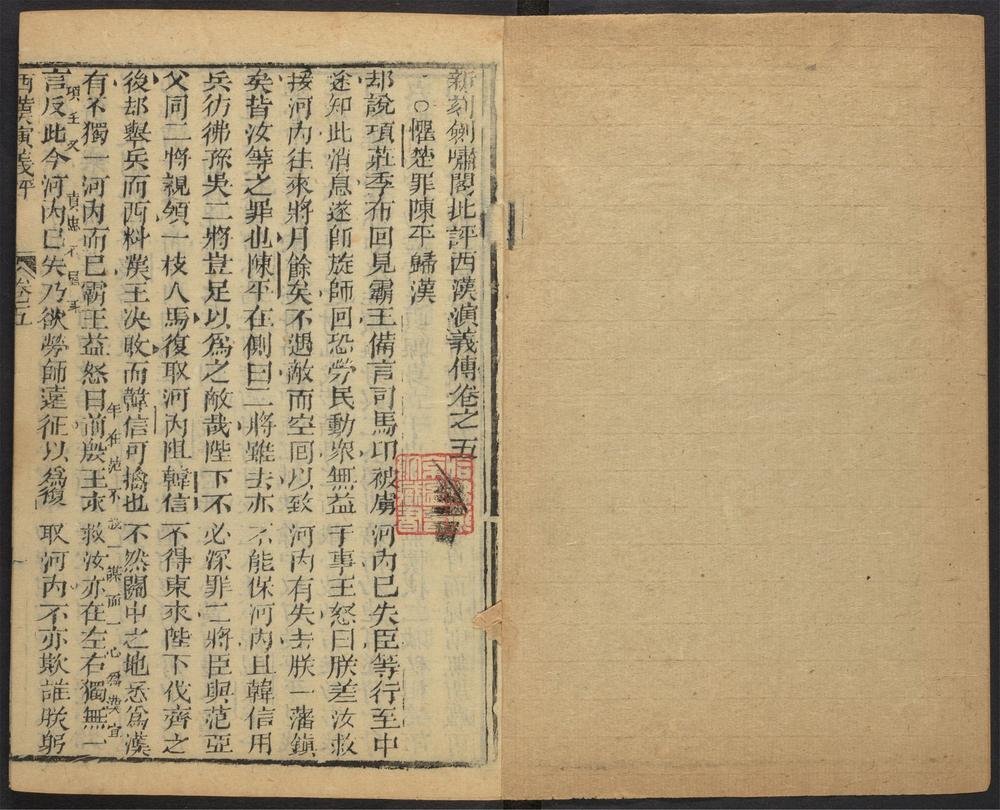 新刻劍嘯閣批評西漢演義傳卷之五
○懼楚罪陳平歸漢
却說項莊季布回見霸王備言司馬卬被虜河內已失臣等行至中
途知此消息遂師旋師回恐勞民動衆無益于事王怒曰朕差汝救
援河內往來將月餘矣不遇敵而空回以致河內有失去朕一藩鎮
矣皆汝等之罪也陳平在側曰二將雖去亦不能保河內且韓信用
兵彷彿孫吳二將豈足以為之敵哉陛下不必深罪二將臣與范亞
父同二將親領一枝人馬復取河內阻韓信不得東來陛下伐齊之
後却舉兵而西料漢王決敗而韓信可擒也不然關中之地悉爲漢
有不獨一河內而已霸王益怒曰前殷王求救汝亦在左右獨無一
言及此今河內已失乃欲勞師遠征以爲復取河內不亦欺誰朕躬
項王又責
西漢演義評
卷五